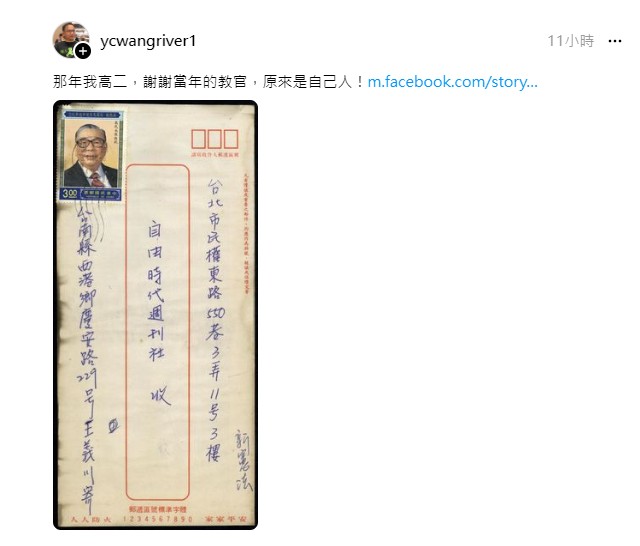 ycwangriver1
11小時
那年我高二，謝謝當年的教官，原來是自己人！m.facebook.com/story...
3.00
台北市民權東路550巷3弄11号3樓
自由時代週刊社 收
台南縣西港鄉慶安路229号王義川寄
新憲法
郵遞區號標準字體
人人防火 1234567890 家家平安